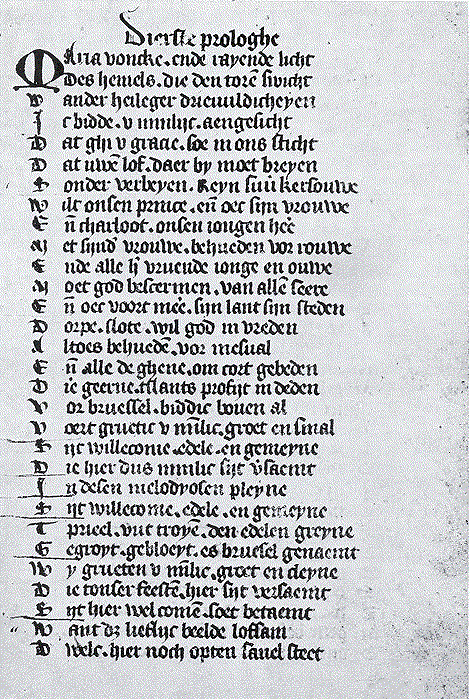 Dierste prologhe
Maria voncke. ende rayende licht
Des hemels. die den torē swicht
Wander heileger drieuuldicheyen
Ic bidde. v minlijc. aengesicht
Dat ghi v gracie. soe in ons sticht
Dat uwē lof. daer by moet breyen
Sonder verbeyen. Reyn suū kersouwe
Wilt onsen prince. eñ oec sijn vrouwe
Eñ charloot. onsen iongen heē
Met sijnd vrouwe. behueden vor rouwe
Ende alle hē vriende ionge en ouwe
Moet god bescermen. van allē seere
Eñ oec voort meē. sijn lant sijn steden
Dorpe. slote. wil god in vreden
Altoes behuedē. vor mesual
Eñ alle de ghene. om cort gebeden
Die geerne. tslants profijt in deden
Vor bruessel. biddic bouen al
Voert gruetic v mīlic. groet en smal
Sijt willecome. edele. en gemeyne
Die hier dus minlic sijt vsaemt
In desen melodyosen pleyne
Sijt willecome. edele. en gemeyne
Tprieel. vut troyē. den edelen greyne
Gegroyt. gebloeyt. es bruesel genaemt
Wy grueten v mīlic. groet en cleyne
Die tonser feestē. hier sijt versaemt
Sijt hier welcomē. soet betaemt
Want dz lieflijc beelde lofsam
Dwelc. hier noch opten sauel steet